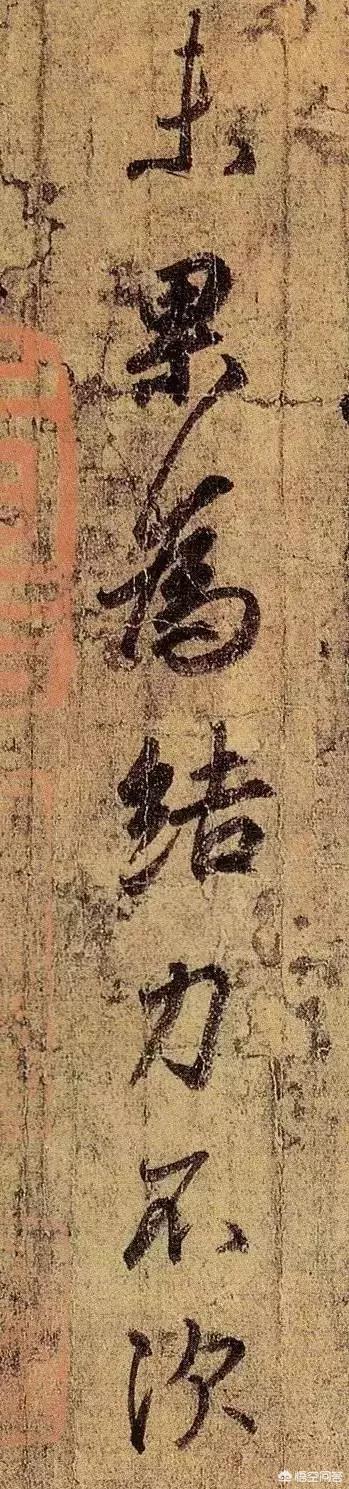 未果為結力不次
悟空问答